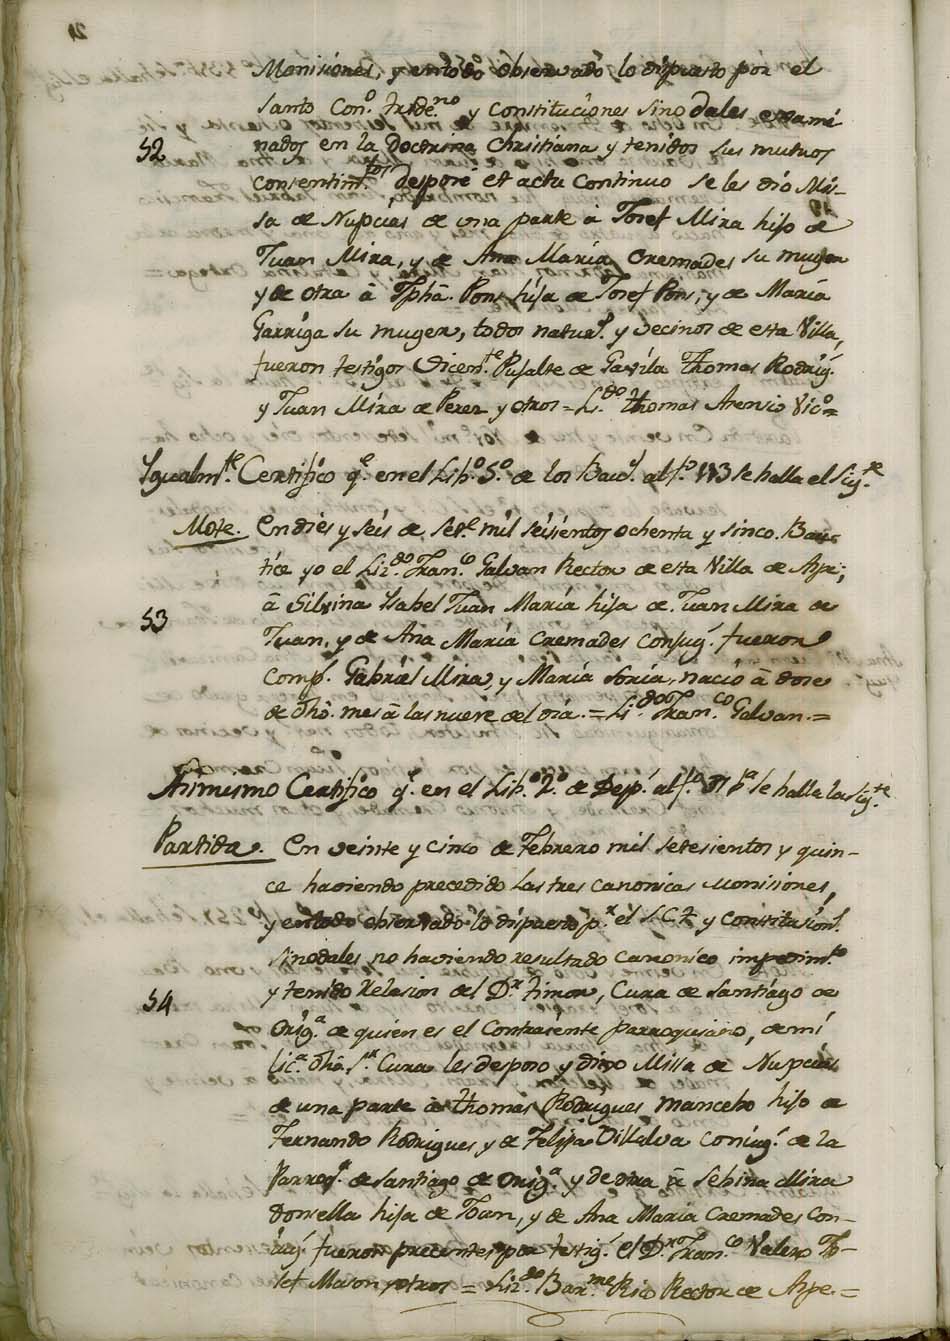 Monisiones, y entodo observado lo dispuesto por el
santo Con.º tride.no y constituciones sinodales exami
52 nados en la Doctrina Christiana y tenidos sus mutuos
consentim.tos desposé et actu continuo se les dio Mi-
sa de Nupcias de una parte á Josef Mira hijo de
Juan Mira, y de Ana María Cremades su muger
y de otra ā Jphā. Pons hija de Josef Pons, y de María
Garriga su muger, todos natur.s y vecinos de esta Villa,
fueron testigos Vicen.te Pujalte de Gavila Thomas Rodrig.
y Juan Mira de Perez y otros = L.do Thomas Asensio Vic.º =
Igualm.te Certifico q.e en el Lib.º 5.º de los Baut. al f.º 113 se halla el Sig.te
Mote. En dies y seis de Set.e mil seisientos ochenta y sinco. Bau-
tíce yo el Liz.do Fran.co Galvan Rector de esta Villa de Aspe;
53 ā Silvina Isabel Juan María hija de Juan Mira de
Juan, y de Ana María Cremades consug. fueron
comp.s Gabriel Mira, y María Soria, nació ā dose
de dhō. mes ā las nueve del día. = Li.do Fran.co Galvan. =
Asimismo Certifico q.e en el Lib.º 2.º de Desp. al f.º 71 b.ta se halla la sig.te
Partida. En veinte y cinco de Febrero mil setesientos y quin-
ce haviendo precedido las tres canonicas Monisiones,
y entodo observado lo dispuesto p.r el S.C.T. y constitusion.s
sinodales no haviendo resultado canonico impedim.to
54 y tenido Relasion del D.r Timor, Cura de Santiago de
Orig.a de quien es el Contraiente parroquiano, de mí
lic.a dhō. S.r Cura les desposo y dixo Missa de Nupcias
de una parte ā Thomas Rodrigues Mancebo hijo de
Fernando Rodrigues y de Felipa Villalva coniug. de la
Parroq.a de Santiago de Orig.a y de otra ā Sebina Mira
donsella hija de Joan, y de Ana María Cremades Con-
iug. fueron precentes por testig. el D.r Fran.co Valero Jo-
sef Mason y otros = Liz.do Bar.me Rico Rector de Aspe. =